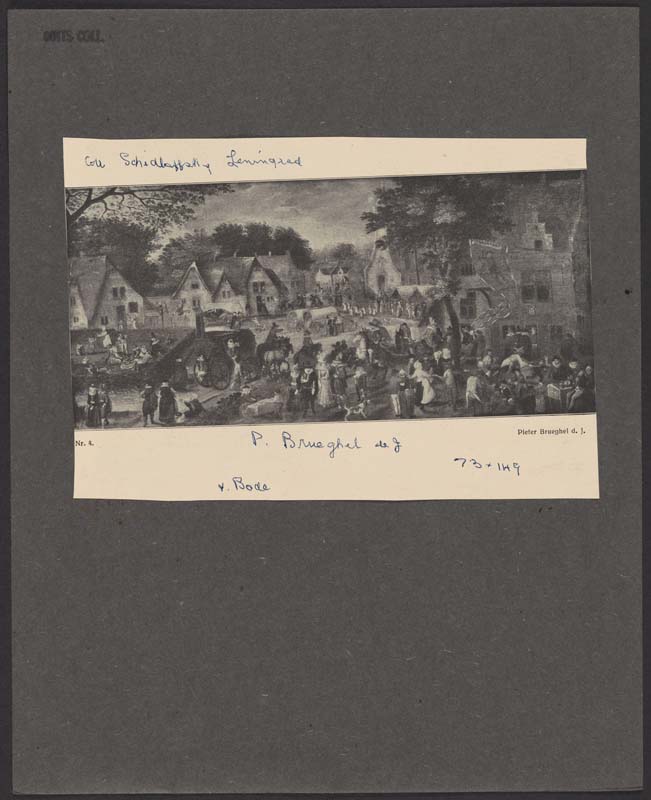 COLL.
Coll Schidlaffsky Leningrad
Nr. 4.
Pieter Brueghel d. J.
P. Brueghel de J
73 x 149
v. Bode